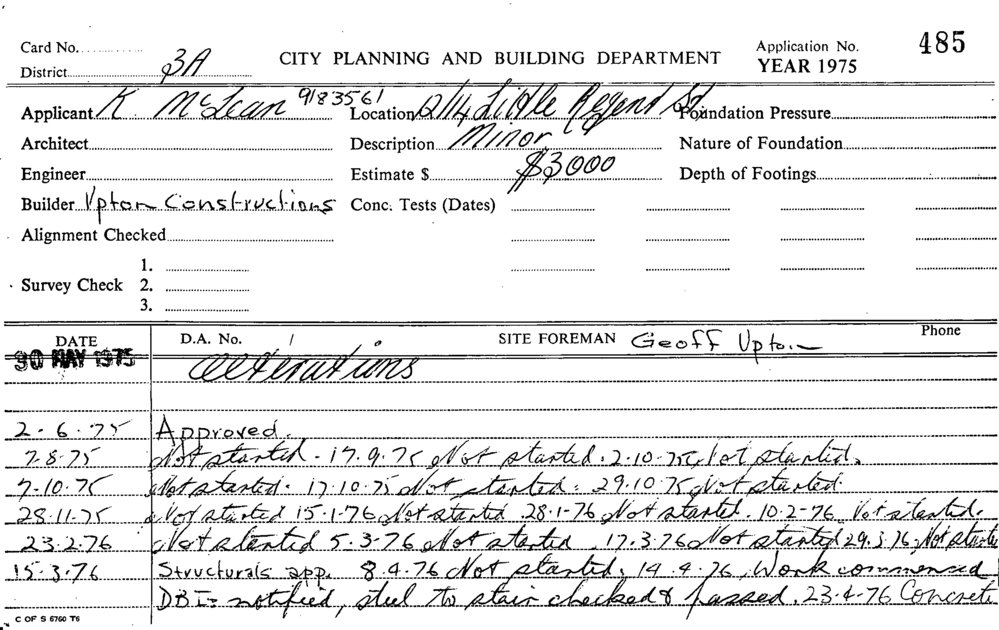 Card No. 485
District 3A CITY PLANNING AND BUILDING DEPARTMENT Application No. YEAR 1975
Applicant K McLean 9183561 Location 12/14 Little Regent St Foundation Pressure
Architect Description Minor Nature of Foundation
Engineer Estimate $ $3000 Depth of Footings
Builder Upton Constructions Conc. Tests (Dates)
Alignment Checked
1.
Survey Check 2.
3.
DATE D.A. No. / SITE FOREMAN Geoff Upton Phone
30 MAY 1975 Alterations
2-6-75 Approved.
7-8-75 Not started. 17.9.75 Not started. 2-10-75 Not started.
7-10-75 Not started. 17.10.75 Not started. 29.10.75 Not started.
28.11.75 Not started 15.1.76 Not started 28.1.76 Not started. 10.2.76 Not started.
23.2.76 Not started 5.3.76 Not started 17.3.76 Not started 29.3.76 Not started
15.3.76 Structurals app. 8.4.76 Not started. 14.4.76, Work commenced
DBI notified, steel to stair checked & passed. 23-4-76 Concrete
C OF S 6760 T6